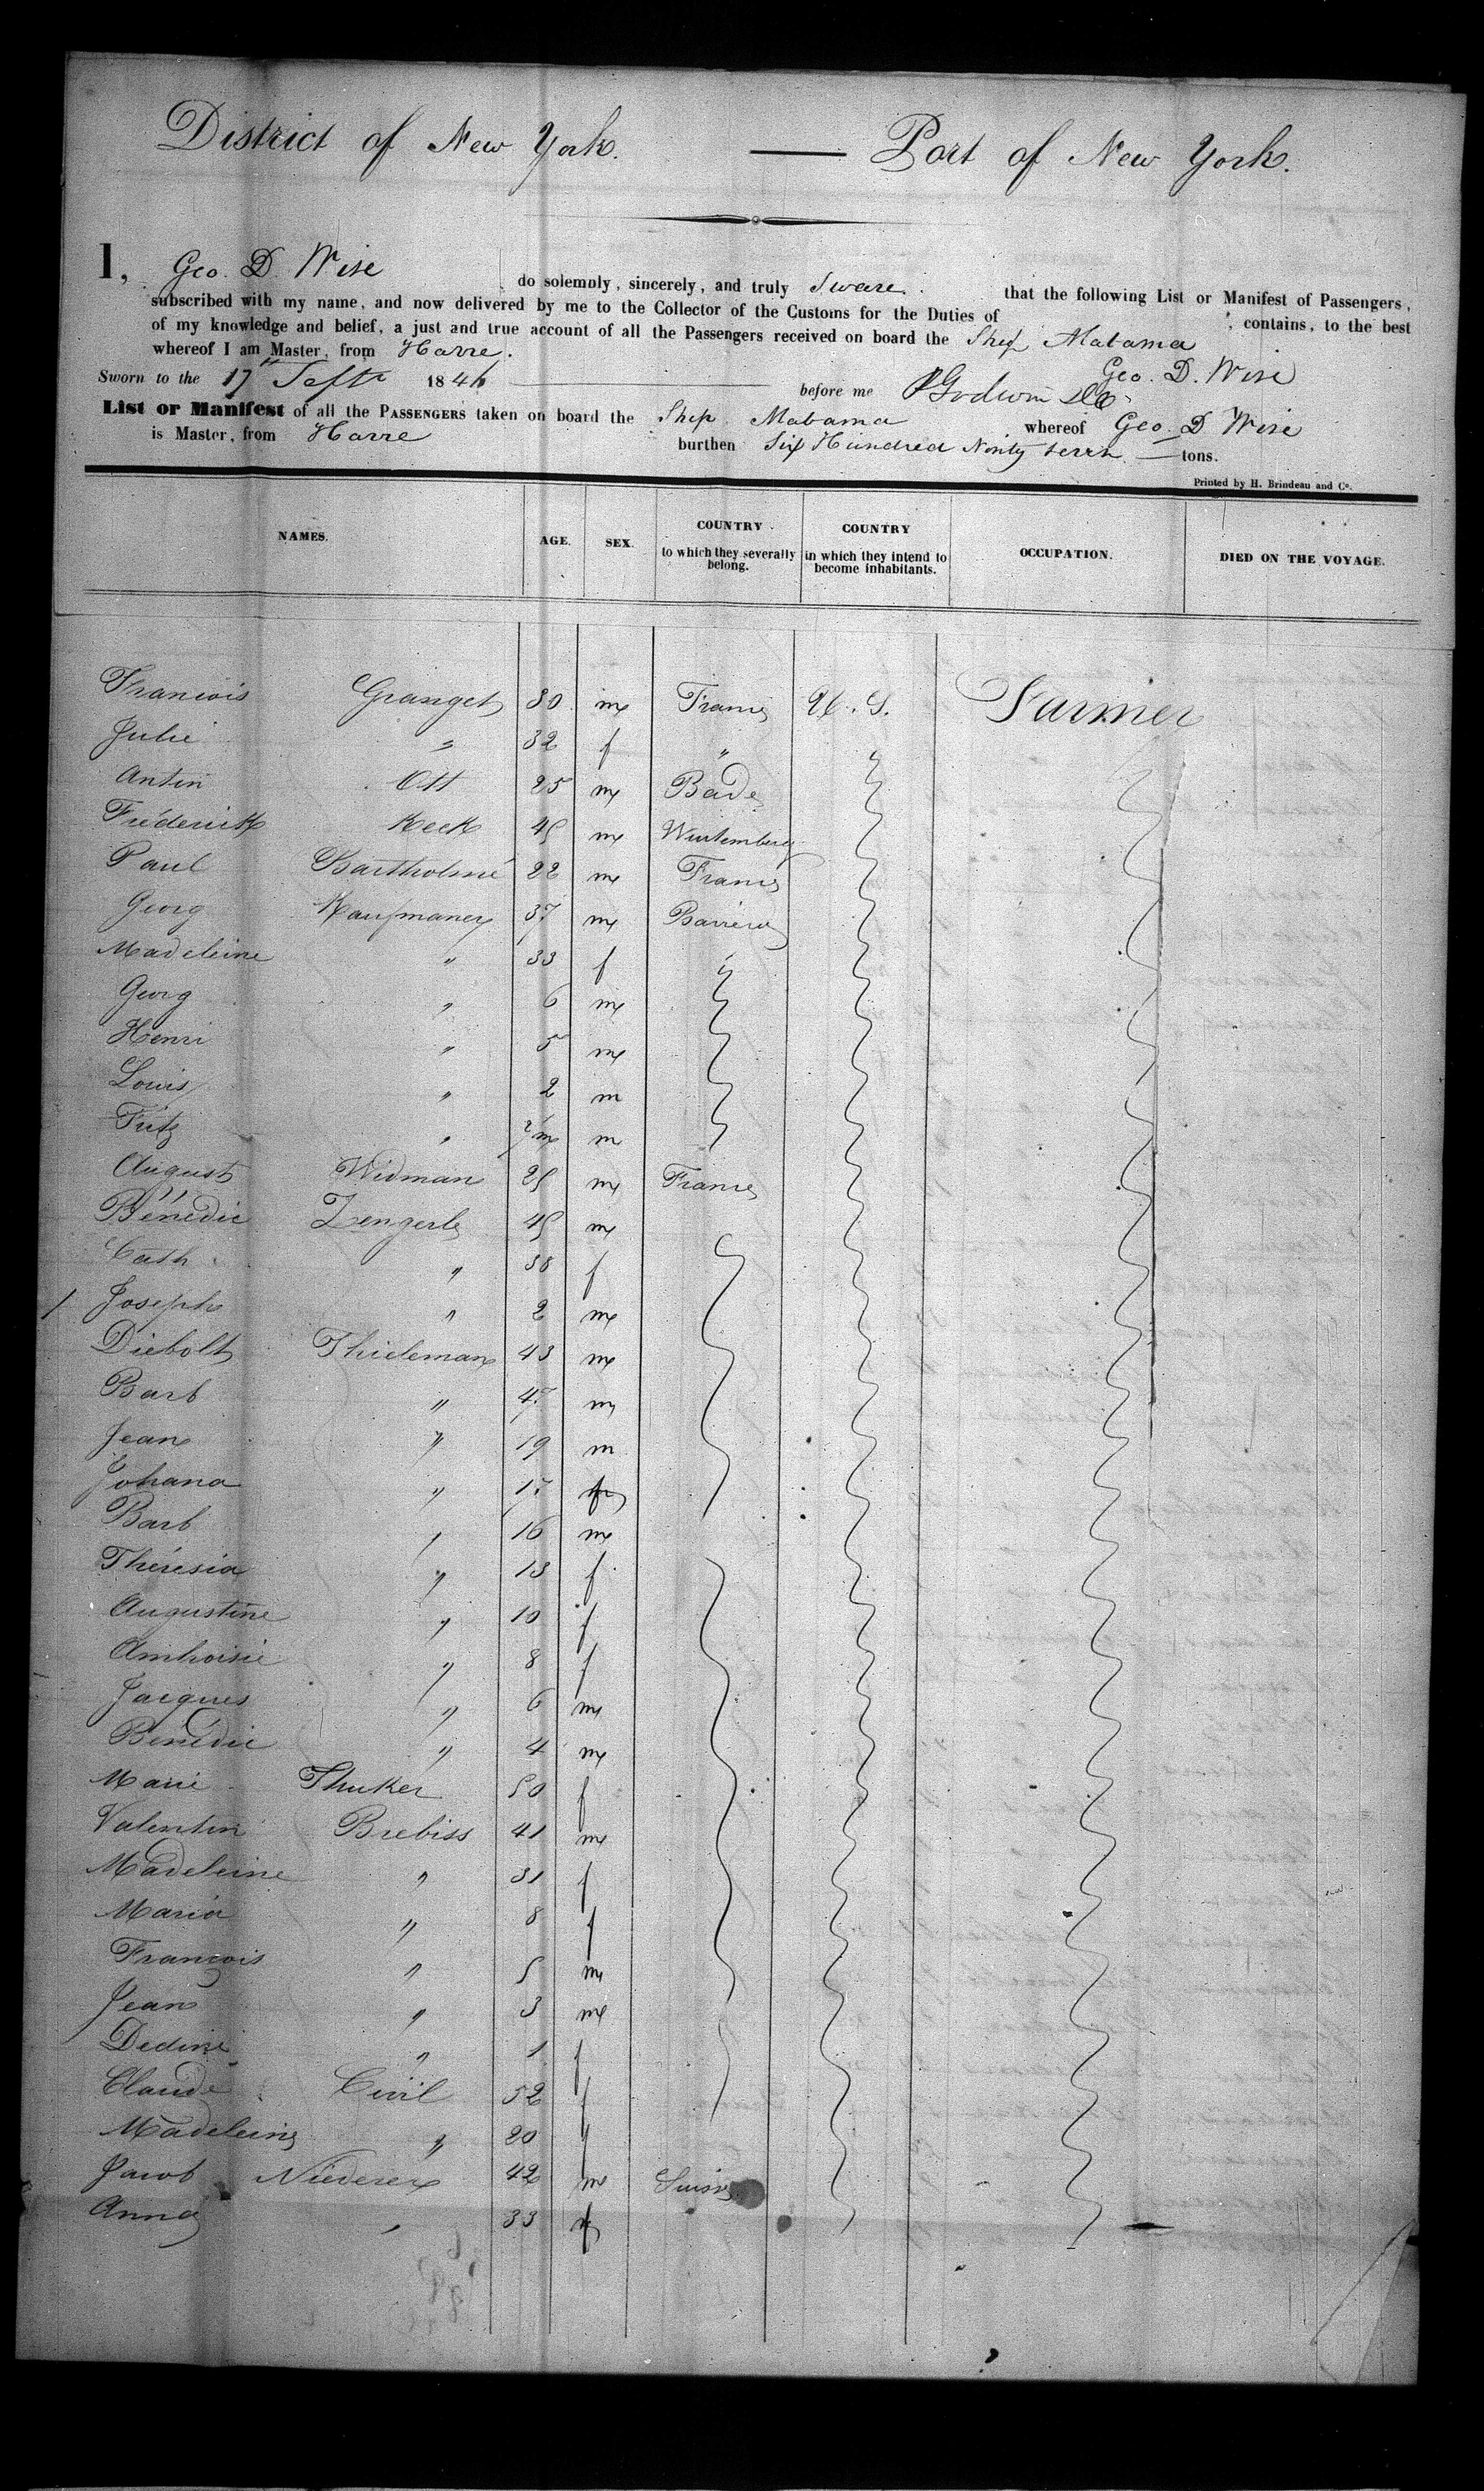 District of New York. — Port of New York.
I, Geo. D. Wise do solemnly, sincerely, and truly Sware that the following List or Manifest of Passengers,
subscribed with my name, and now delivered by me to the Collector of the Customs for the Duties of , contains, to the best
of my knowledge and belief, a just and true account of all the Passengers received on board the Ship Mabama
whereof I am Master, from Havre.
Geo. D. Wise
Sworn to the 17th Septr 1846 before me
List or Manifest of all the PASSENGERS taken on board the Ship Mabama whereof Geo. D Wise
is Master, from Havre burthen Six Hundred Ninty seven tons.
Printed by H. Brindeau and Co.
NAMES. AGE. SEX. COUNTRY to which they severally belong. COUNTRY in which they intend to become inhabitants. OCCUPATION. DIED ON THE VOYAGE.
Francois Granget 30 m France U.S. Farmer
Julie " 32 f "
Antin Ott 25 m Bade
Fréderick Keck 45 m Wurtemberg
Paul Bartholmé 22 m France
Georg Kaufmann 37 m Baviere
Madeleine " 33 f "
Georg " 6 m
Henri " 5 m
Louis " 2 m
Fritz " 7m m
August Widman 25 m France
Bénédic Zengerle 45 m
Cath. " 38 f
Joseph " 2 m
Diebolt Thieleman 43 m
Barb " 47 m
Jean " 19 m
Johana " 17 f
Barb " 16 m
Thérésia " 13 f
Augustine " 10 f
Ambroisie " 8 f
Jacques " 6 m
Bénédic " 4 m
Marie Thuker 50 f
Valentin Brebiss 41 m
Madeleine " 31 f
Maria " 8 f
François " 5 m
Jean " 3 m
Dedine " 1 f
Claude Civil 52 f
Madeleine " 20 f
Jacob Niederer 42 m Suisse
Anna " 33 f